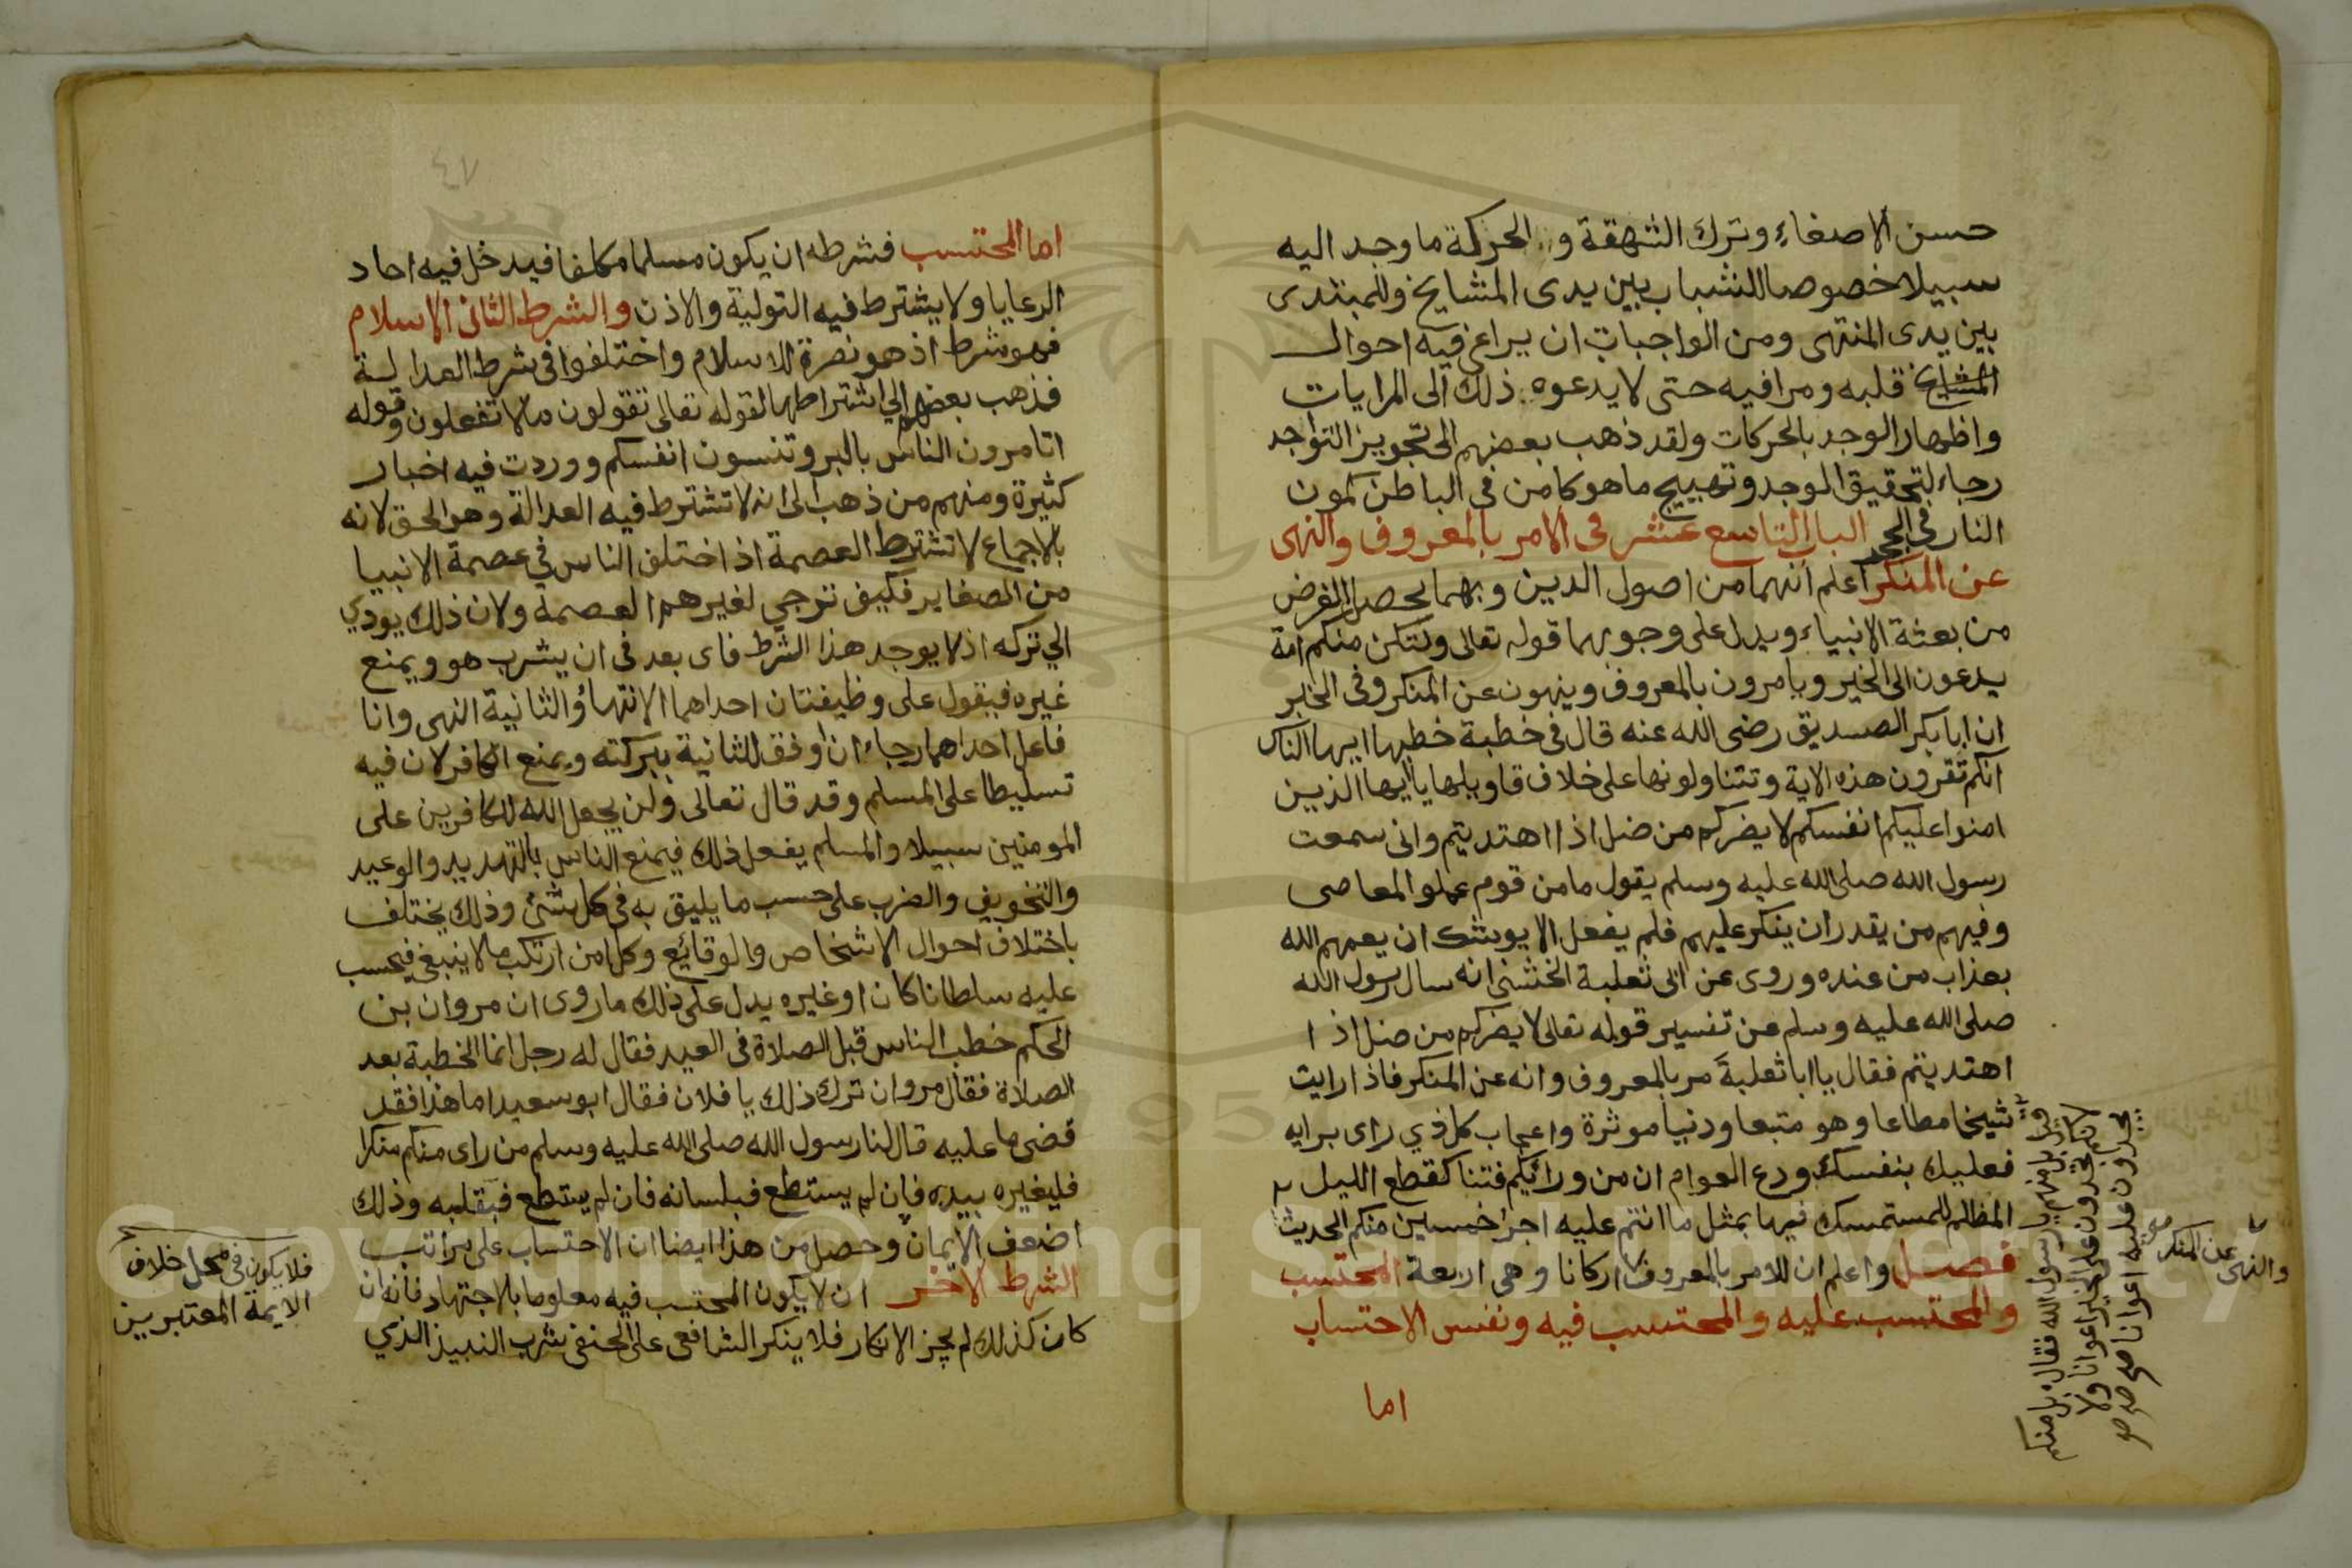 حسن الاصغاء وترك الشهقة و الحركة ما وجد اليه
سبيلا خصوصا للشباب بين يدى المشايخ وللمبتدى
بين يدى المنتهى ومن الواجبات ان يراعى فيه احوال
المشايخ قلبه ومرافيه حتى لا يدعوه ذلك الى المرايات
واظهار الوجد بالحركات ولقد ذهب بعضهم الى تجويز التواجد
رجاء لتحقيق الوجد وتهييج ما هو كامن فى الباطن كمون
النار فى الحجر الباب التاسع عشر فى الامر بالمعروف والنهى
عن المنكر اعلم انهما من اصول الدين وبهما يحصل الغرض
من بعثة الانبياء ويدل على وجوبهما قوله تعالى ولتكن منكم امة
يدعون الى الخير ويامرون بالمعروف وينهون عن المنكر وفى الخبر
ان ابا بكر الصديق رضى الله عنه قال فى خطبة خطبها ايها الناس
انكم تقرون هذه الاية وتتناولونها على خلاف تاويلها يا ايها الذين
امنوا عليكم انفسكم لا يضركم من ضل اذا اهتديتم وانى سمعت
رسول الله صلى الله عليه وسلم يقول ما من قوم عملوا المعاصى
وفيهم من يقدر ان ينكر عليهم فلم يفعل الا يوشك ان يعمهم الله
بعذاب من عنده وروى عن ابى ثعلبة الخشنى انه سال رسول الله
صلى الله عليه وسلم عن تفسير قوله تعالى لا يضركم من ضل اذا
اهتديتم فقال يا ابا ثعلبة مر بالمعروف وانه عن المنكر فاذا رايت
شيخا مطاعا وهو متبعا ودنيا موثرة واعجاب كل ذي راى برايه
فعليك بنفسك ودع العوام ان من ورائكم فتنا كقطع الليل
المظلم للمتمسك فيها بمثل ما انتم عليه اجر خمسين منكم الحديث
فصل واعلم ان للامر بالمعروف اركانا وهى اربعة المحتسب
والمحتسب عليه والمحتسب فيه ونفس الاحتساب
اما
بل منهم يا رسول الله فقال بل منكم
لانكم تجدون على الخير اعوانا ولا
يجدون عليه اعوانا صح
والنهى عن المنكر صح
٤٧
اما المحتسب فشرطه ان يكون مسلما مكلفا فيدخل فيه احاد
الرعايا ولا يشترط فيه التولية والاذن والشرط الثانى الاسلام
فهو شرط اذ هو نصرة للاسلام واختلفوا فى شرط العدالة
فذهب بعضهم الي اشتراطها لقوله تعالى تقولون ما لا تفعلون وقوله
اتامرون الناس بالبر وتنسون انفسكم ووردت فيه اخبار
كثيرة ومنهم من ذهب الى انه لا تشترط فيه العدالة وهو الحق لانه
بالاجماع لا تشترط العصمة اذ اختلف الناس في عصمة الانبيا
من الصغاير فكيف ترجي لغيرهم العصمة ولان ذلك يودي
الي تركه اذ لا يوجد هذا الشرط فاى بعد فى ان يشرب هو ويمنع
غيره فيقول على وظيفتان احداهما الانتهاؤ الثانية النهى وانا
فاعل احداهما رجاء ان اوفق للثانية ببركته ويمنع الكافر لان فيه
تسليطا على المسلم وقد قال تعالى ولن يجعل الله للكافرين على
المومنين سبيلا والمسلم يفعل ذلك فيمنع الناس بالتهديد والوعيد
والتخويف والضرب على حسب ما يليق به فى كل شئ وذلك يختلف
باختلاف احوال الاشخاص والوقائع وكل من ارتكب ما لا ينبغى فيحسب
عليه سلطانا كان او غيره يدل على ذلك ما روى ان مروان بن
الحكم خطب الناس قبل الصلاة فى العيد فقال له رجل انما الخطبة بعد
الصلاة فقال مروان ترك ذلك يا فلان فقال ابو سعيد اما هذا فقد
قضى ما عليه قال لنا رسول الله صلى الله عليه وسلم من راى منكم منكرا
فليغيره بيده فان لم يستطع فبلسانه فان لم يستطع فبقلبه وذلك
اضعف الايمان وحصل من هذا ايضا ان الاحتساب على مراتب
الشرط الاخر ان لا يكون المحتسب فيه معلوما بالاجتهاد فانه ان
كان كذلك لم يجز الانكار فلا ينكر الشافعى على الحنفى شرب النبيذ الذي
فلا يكون فى محل خلاف
الايمة المعتبرين
Copyright © King Saud University